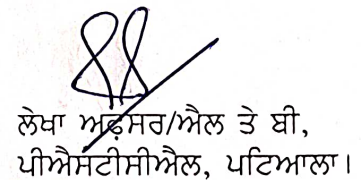 ਲੇਖਾ ਅਫ਼ਸਰ/ਐਲ ਤੇ ਬੀ,
ਪੀਐਸਟੀਸੀਐਲ, ਪਟਿਆਲਾ।